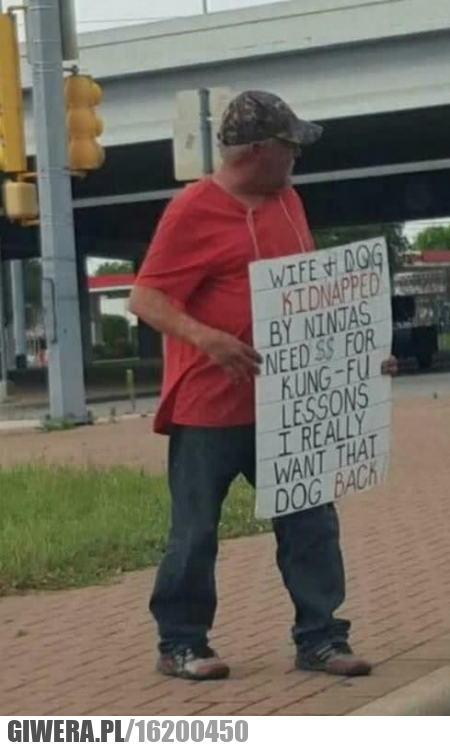 WIFE & DOG
KIDNAPPED
BY NINJAS
NEED $$ FOR
KUNG-FU
LESSONS
I REALLY
WANT THAT
DOG BACK!
GIWERA.PL/16200450